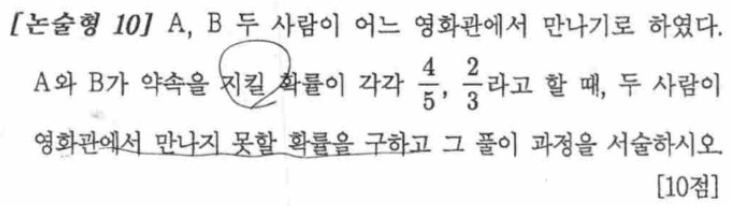 [논술형 10] A, B 두 사람이 어느 영화관에서 만나기로 하였다.
A와 B가 약속을 지킬 확률이 각각 4/5, 2/3라고 할 때, 두 사람이
영화관에서 만나지 못할 확률을 구하고 그 풀이 과정을 서술하시오.
[10점]